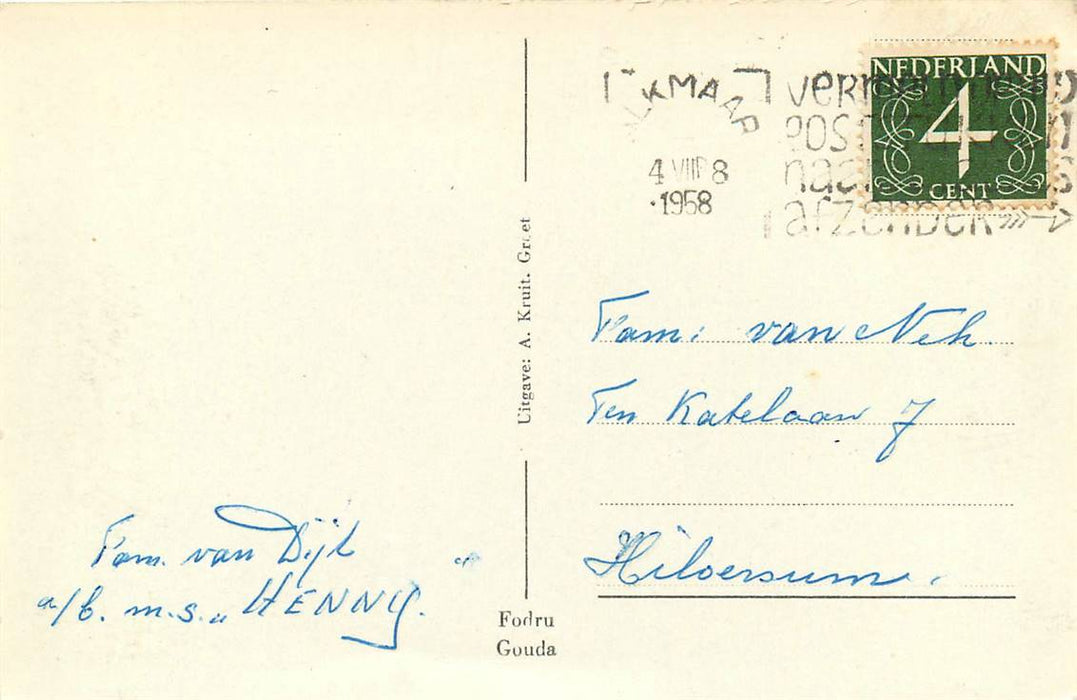 ALKMAAR
4 VIII 8
1958
afzender
NEDERLAND
4
CENT
Uitgave: A. Kruit. Groet
Fam. van Nek.
Ten Katelaan 7
Hilversum.
Fam. van Dijk
a/b. m.s. „HENNY.
Fodru
Gouda